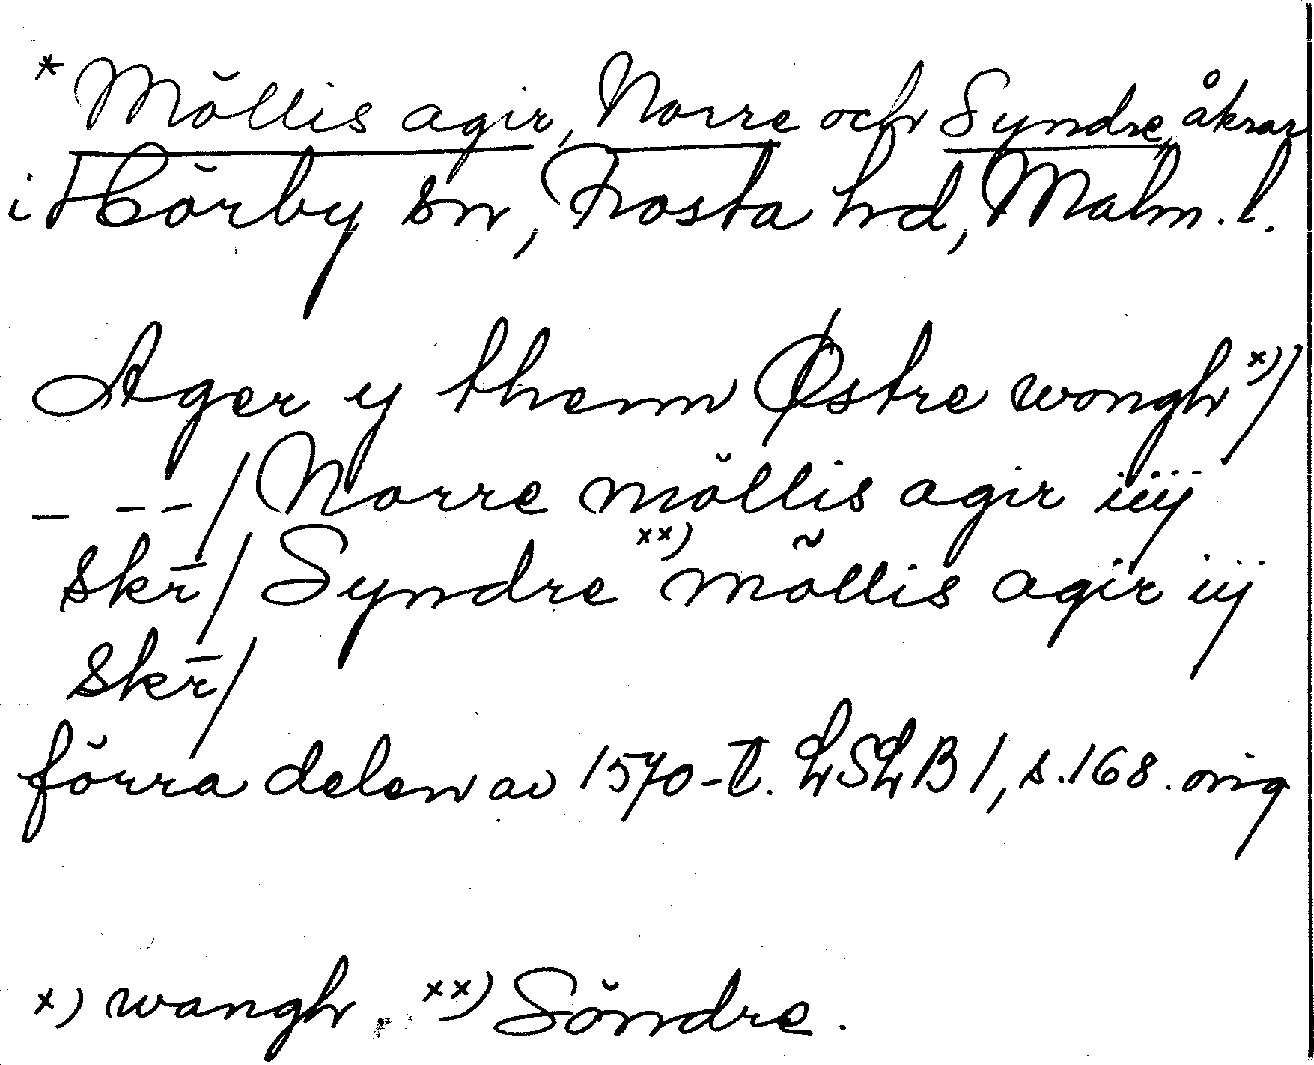 * Möllis agir, Norre och Syndre, åkrar
i Hörby sn, Frosta hd, Malm. l.
Ager y themm Østre wongh x)/
_ _ _ / Norre möllis agir iiij
skr̄/ Syndre xx) mõllis agir iij
skr̄/
förra delen av 1570-t. LSLB 1, s. 168. orig
x) wangh. xx) Söndre.